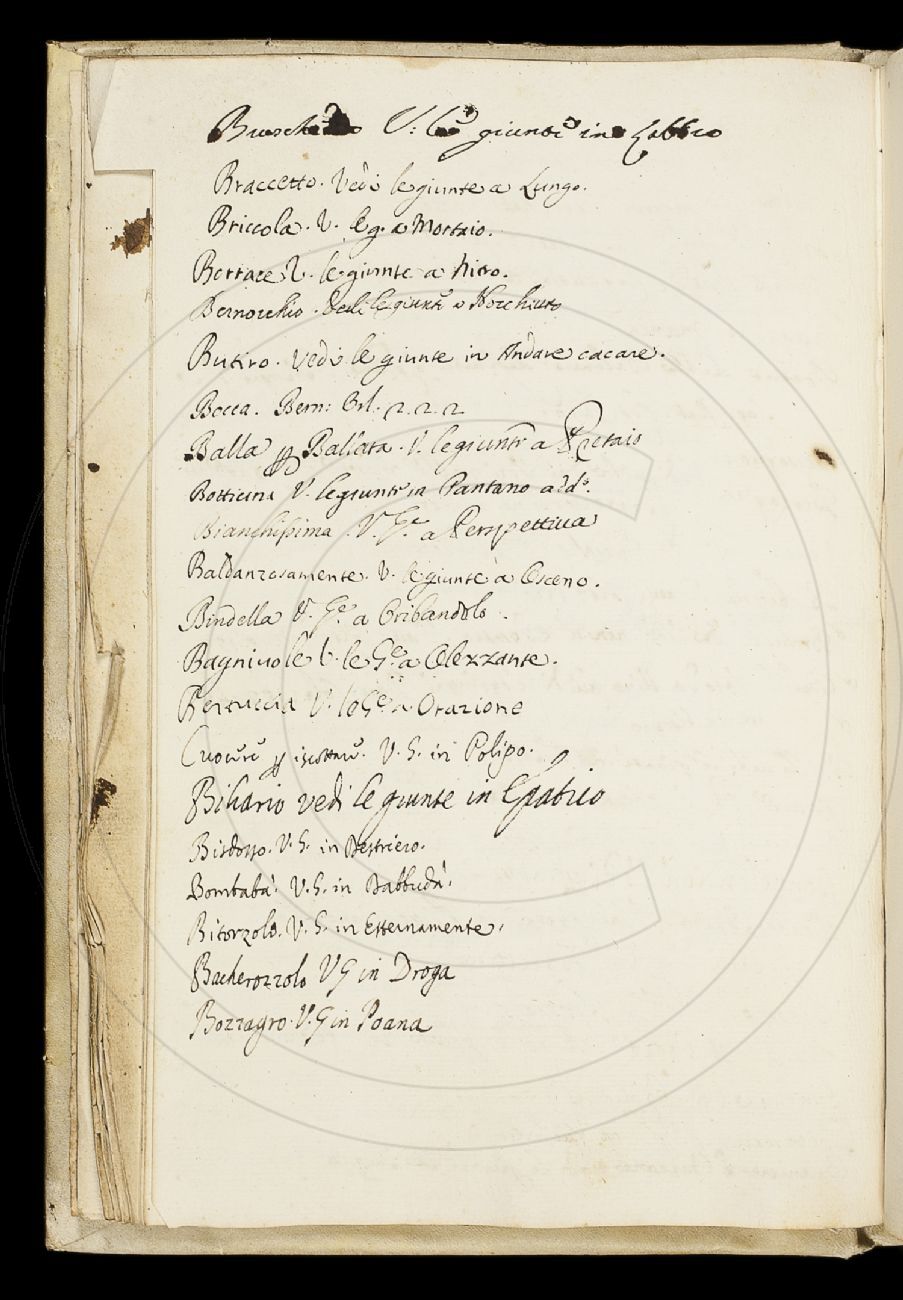 V: le giunte in Labbro
Braccetto. Vedi le giunte a Lungo.
Briccola. V. le g. a Mortaio.
Borrace V. le giunte a Nitro.
Bernocchio. Vedi le giunte a Nocchiuto
Butiro. Vedi le giunte in Andare cacare.
Bocca. Bern: Orl. 2. 2. 2
Balla p Ballata. V. le giunte a Pretaio
Botticina V. le giunte in Pantano add.
Bianchissima V. Ge. a Perspettiva
Baldanzosamente. V. le giunte a Osceno.
Bindella V. Ge. a Oribandolo.
Bagnivole V. le Ge. a Olezzante.
Bertuccia V. le Ge. a Orazione
V. G. in Polipo.
Biliario vedi le giunte in Epatico
Bisdosso. V. G. in Destriero.
Bombabà. V. G. in Babbudà.
Bitorzolo. V. G. in Esternamente.
Bacherozzolo V G in Droga
Bozzagro. V. G in Poana